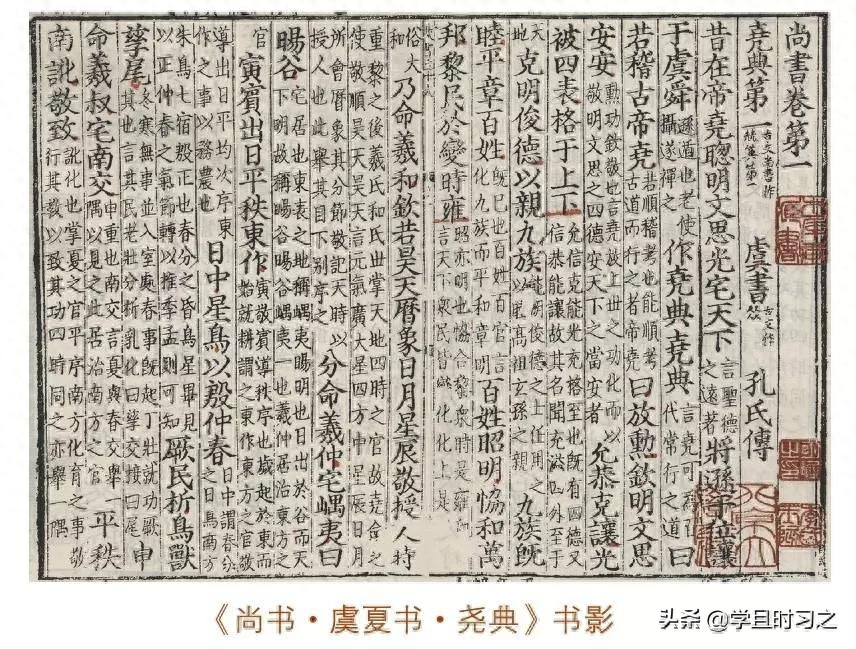 尚書卷第一
堯典第一 虞書 孔氏傳
昔在帝堯聰明文思光宅天下言聖德之遠著將遜于位讓
于虞舜遜遁也老使攝遂禪之作堯典堯典言堯可為百代常行之道曰
若稽古帝堯若順稽考也能順考古道而行之者帝堯曰放勳欽明文思
安安勳功欽敬也言堯放上世之功化而以敬明文思之四德安天下之當安者允恭克讓光
被四表格于上下允信克能光充格至也既有四德又信恭能讓故其名聞充溢四外至于
天地克明俊德以親九族能明俊德之士任用之以睦高祖玄孫之親九族既
睦平章百姓既已也百姓百官言化九族而平和章明百姓昭明協和萬
邦黎民於變時雍昭亦明也協合黎衆時是雍和也言天下衆民皆變化化上是以風
俗大和乃命羲和欽若昊天曆象日月星辰敬授人時
重黎之後羲氏和氏世掌天地四時之官故堯命之使敬順昊天昊天言元氣廣大星四方中星辰日月
所會曆象其分節敬記天時以授人也此舉其目下別序之分命羲仲宅嵎夷曰
暘谷宅居也東表之地稱嵎夷暘明也日出於谷而天下明故稱暘谷暘谷嵎夷一也羲仲居治東方之
官寅賓出日平秩東作寅敬賓導秩序也歲起於東而始就耕謂之東作東方之官敬
導出日平均次序東作之事以務農也日中星鳥以殷仲春日中謂春分之日鳥南方
朱鳥七宿殷正也春分之昏鳥星畢見以正仲春之氣節轉以推季孟則可知厥民析鳥獸
孳尾冬寒無事並入室處春事既起丁壯就功厥其也言其民老壯分析乳化曰孳交接曰尾申
命羲叔宅南交申重也南交言夏與春交舉一隅以見之此居治南方之官平秩
南訛敬致訛化也掌夏之官平序南方化育之事敬行其教以致其功四時同之亦舉一隅
《尚书·虞夏书·尧典》书影
头条 @学且时习之